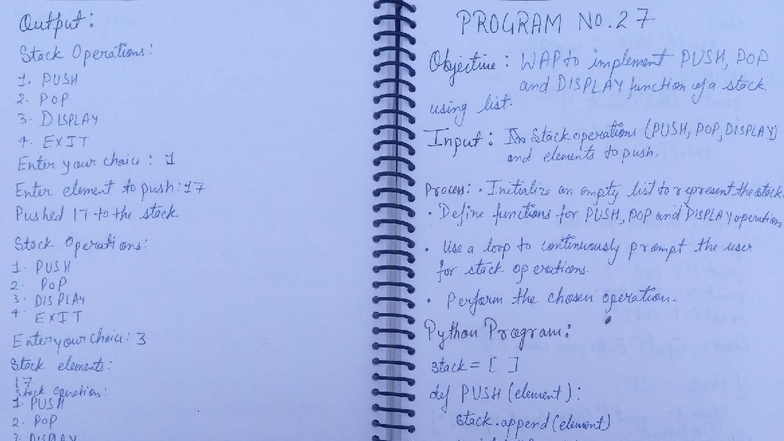 Output:
Stack Operations:
1. PUSH
2. POP
3. DISPLAY
4. EXIT
Enter your choice : 1
Enter element to push:17
Pushed 17 to the stack
Stack Operations:
1. PUSH
2. POP
3. DISPLAY
4 EXIT
Enter your choice: 3
Stack elements:
17
Stack operations:
1. PUSH
2. POP
3. DISPLAY
PROGRAM NO.27
Objective : WAP to implement PUSH, POP
and DISPLAY function of a stack
using list.
Input : Stack operations (PUSH, POP, DISPLAY)
and elements to push.
Process: • Initialize an empty list to represent the stack.
• Define functions for PUSH, POP and DISPLAY operations
• Use a loop to continuously prompt the user
for stack operations.
• Perform the chosen operation.
Python Program:
stack = [ ]
def PUSH (element) :
stack.append(element)